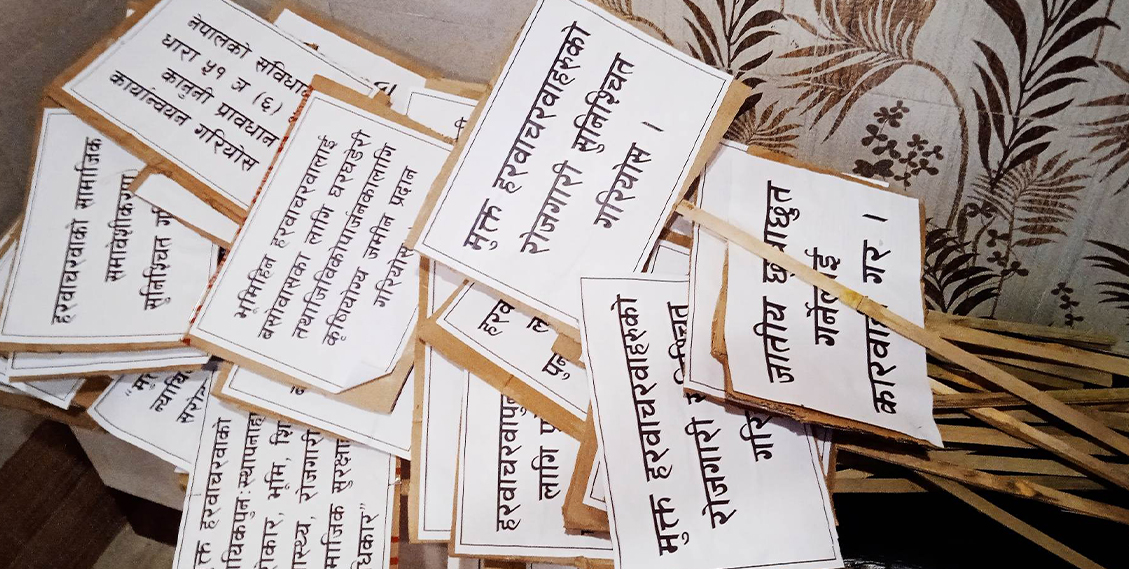 नेपालको संविधा
धारा ५१ ञ (६)
कानुनी प्रावधान
कार्यान्वयन गरियोस
हरवाचरवाको सामाजिक
समावेशीकरण
सुनिश्चित
भूमिहिन हरवाचरवालाई
बसोवासका लागि घरघडेरी
तथाजिविकोपार्जनकालागि
कृषियोग्य जमीन प्रदान
गरियोस
मुक्त हरवाचरवाहरुको
रोजगारी सुनिश्चित
गरियोस ।
जातीय छुवाछुत
गर्नेलाई
गर ।
मुक्त हरवाचरवाहरुको
रोजगारी
हरवाचरवापु
लागि
हरवाचरवाको
यिकपुन:स्थापनाह
रोकार, भूमि, शि
ास्थ्य, रोजगारी
माजिक सुरक्षा
धिकार”